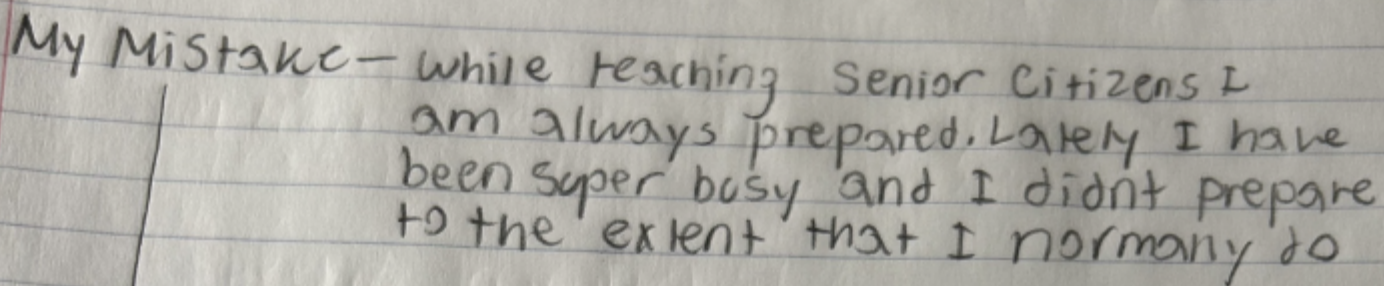 My Mistake - while teaching Senior Citizens I
am always prepared. Lately I have
been super busy and I didnt prepare
to the extent that I normally do